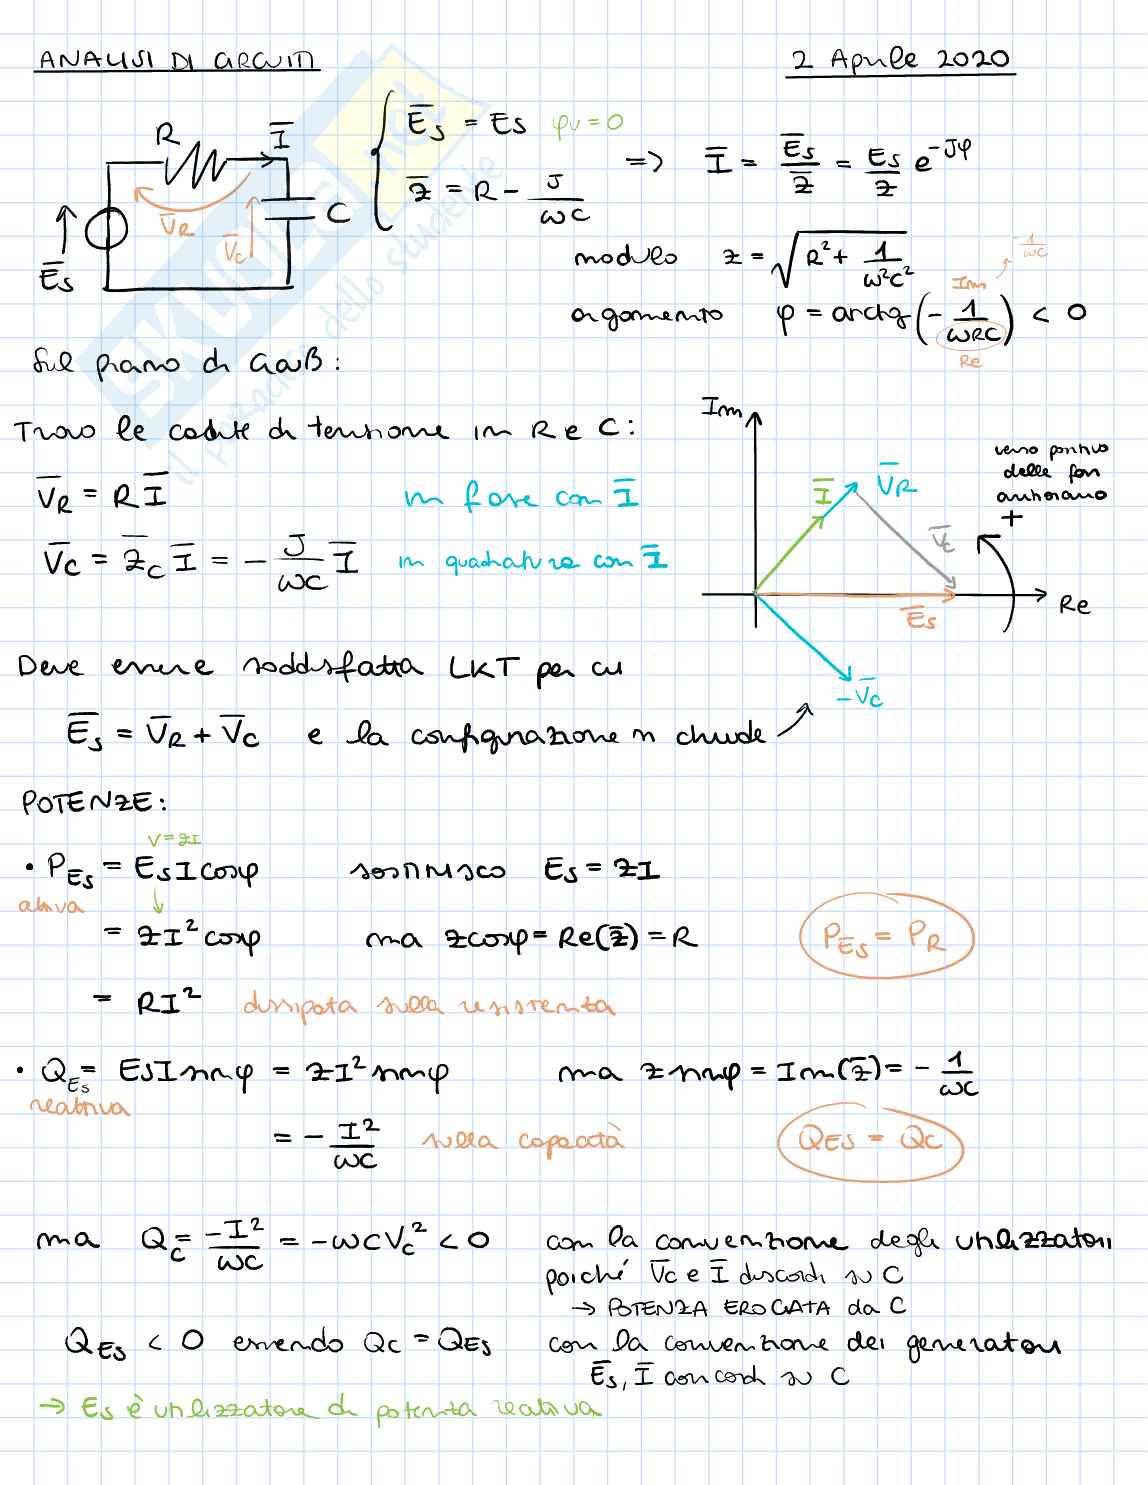 ANALISI DI CIRCUITI 2 Aprile 2020
R Ī
V̄R V̄c C
Ēs
Ēs = Es φv = 0
z̄ = R - J/ωC
=> Ī = Ēs/z̄ = Es/z e^-Jφ
modulo z = √(R² + 1/ω²C²)
-1/ωC
Im
argomento φ = arctg(-1/ωRC) < 0
Re
Sul piano di Gauß:
Trovo le cadute di tensione in R e C:
V̄R = R Ī in fase con Ī
V̄c = z̄c Ī = - J/ωC Ī in quadratura con Ī
Im
Ī V̄R
V̄c
Ēs
Re
-V̄c
verso positivo
delle fasi
antiorario
+
Deve essere soddisfatta LKT per cui
Ēs = V̄R + V̄c e la configurazione si chiude
POTENZE:
V=zI
• PĒs = Es I cosφ sostituisco Es = zI
attiva
= zI² cosφ ma zcosφ = Re(z̄) = R PĒs = PR
= RI² dissipata sulla resistenza
• QĒs = Es I sinφ = zI² sinφ ma z sinφ = Im(z̄) = - 1/ωC
reattiva
= - I²/ωC sulla capacità QES = QC
ma Qc = -I²/ωC = -ωCVc² < 0 con la convenzione degli utilizzatori
poiché V̄c e Ī discordi su C
→ POTENZA EROGATA da C
QES < 0 essendo Qc = QES con la convenzione dei generatori
Ēs, Ī concordi su C
→ Es è utilizzatore di potenza reattiva
SKUOLA.net
il paradiso dello studente